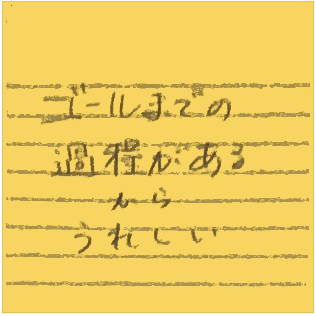 ゴールまでの
過程がある
から
うれしい